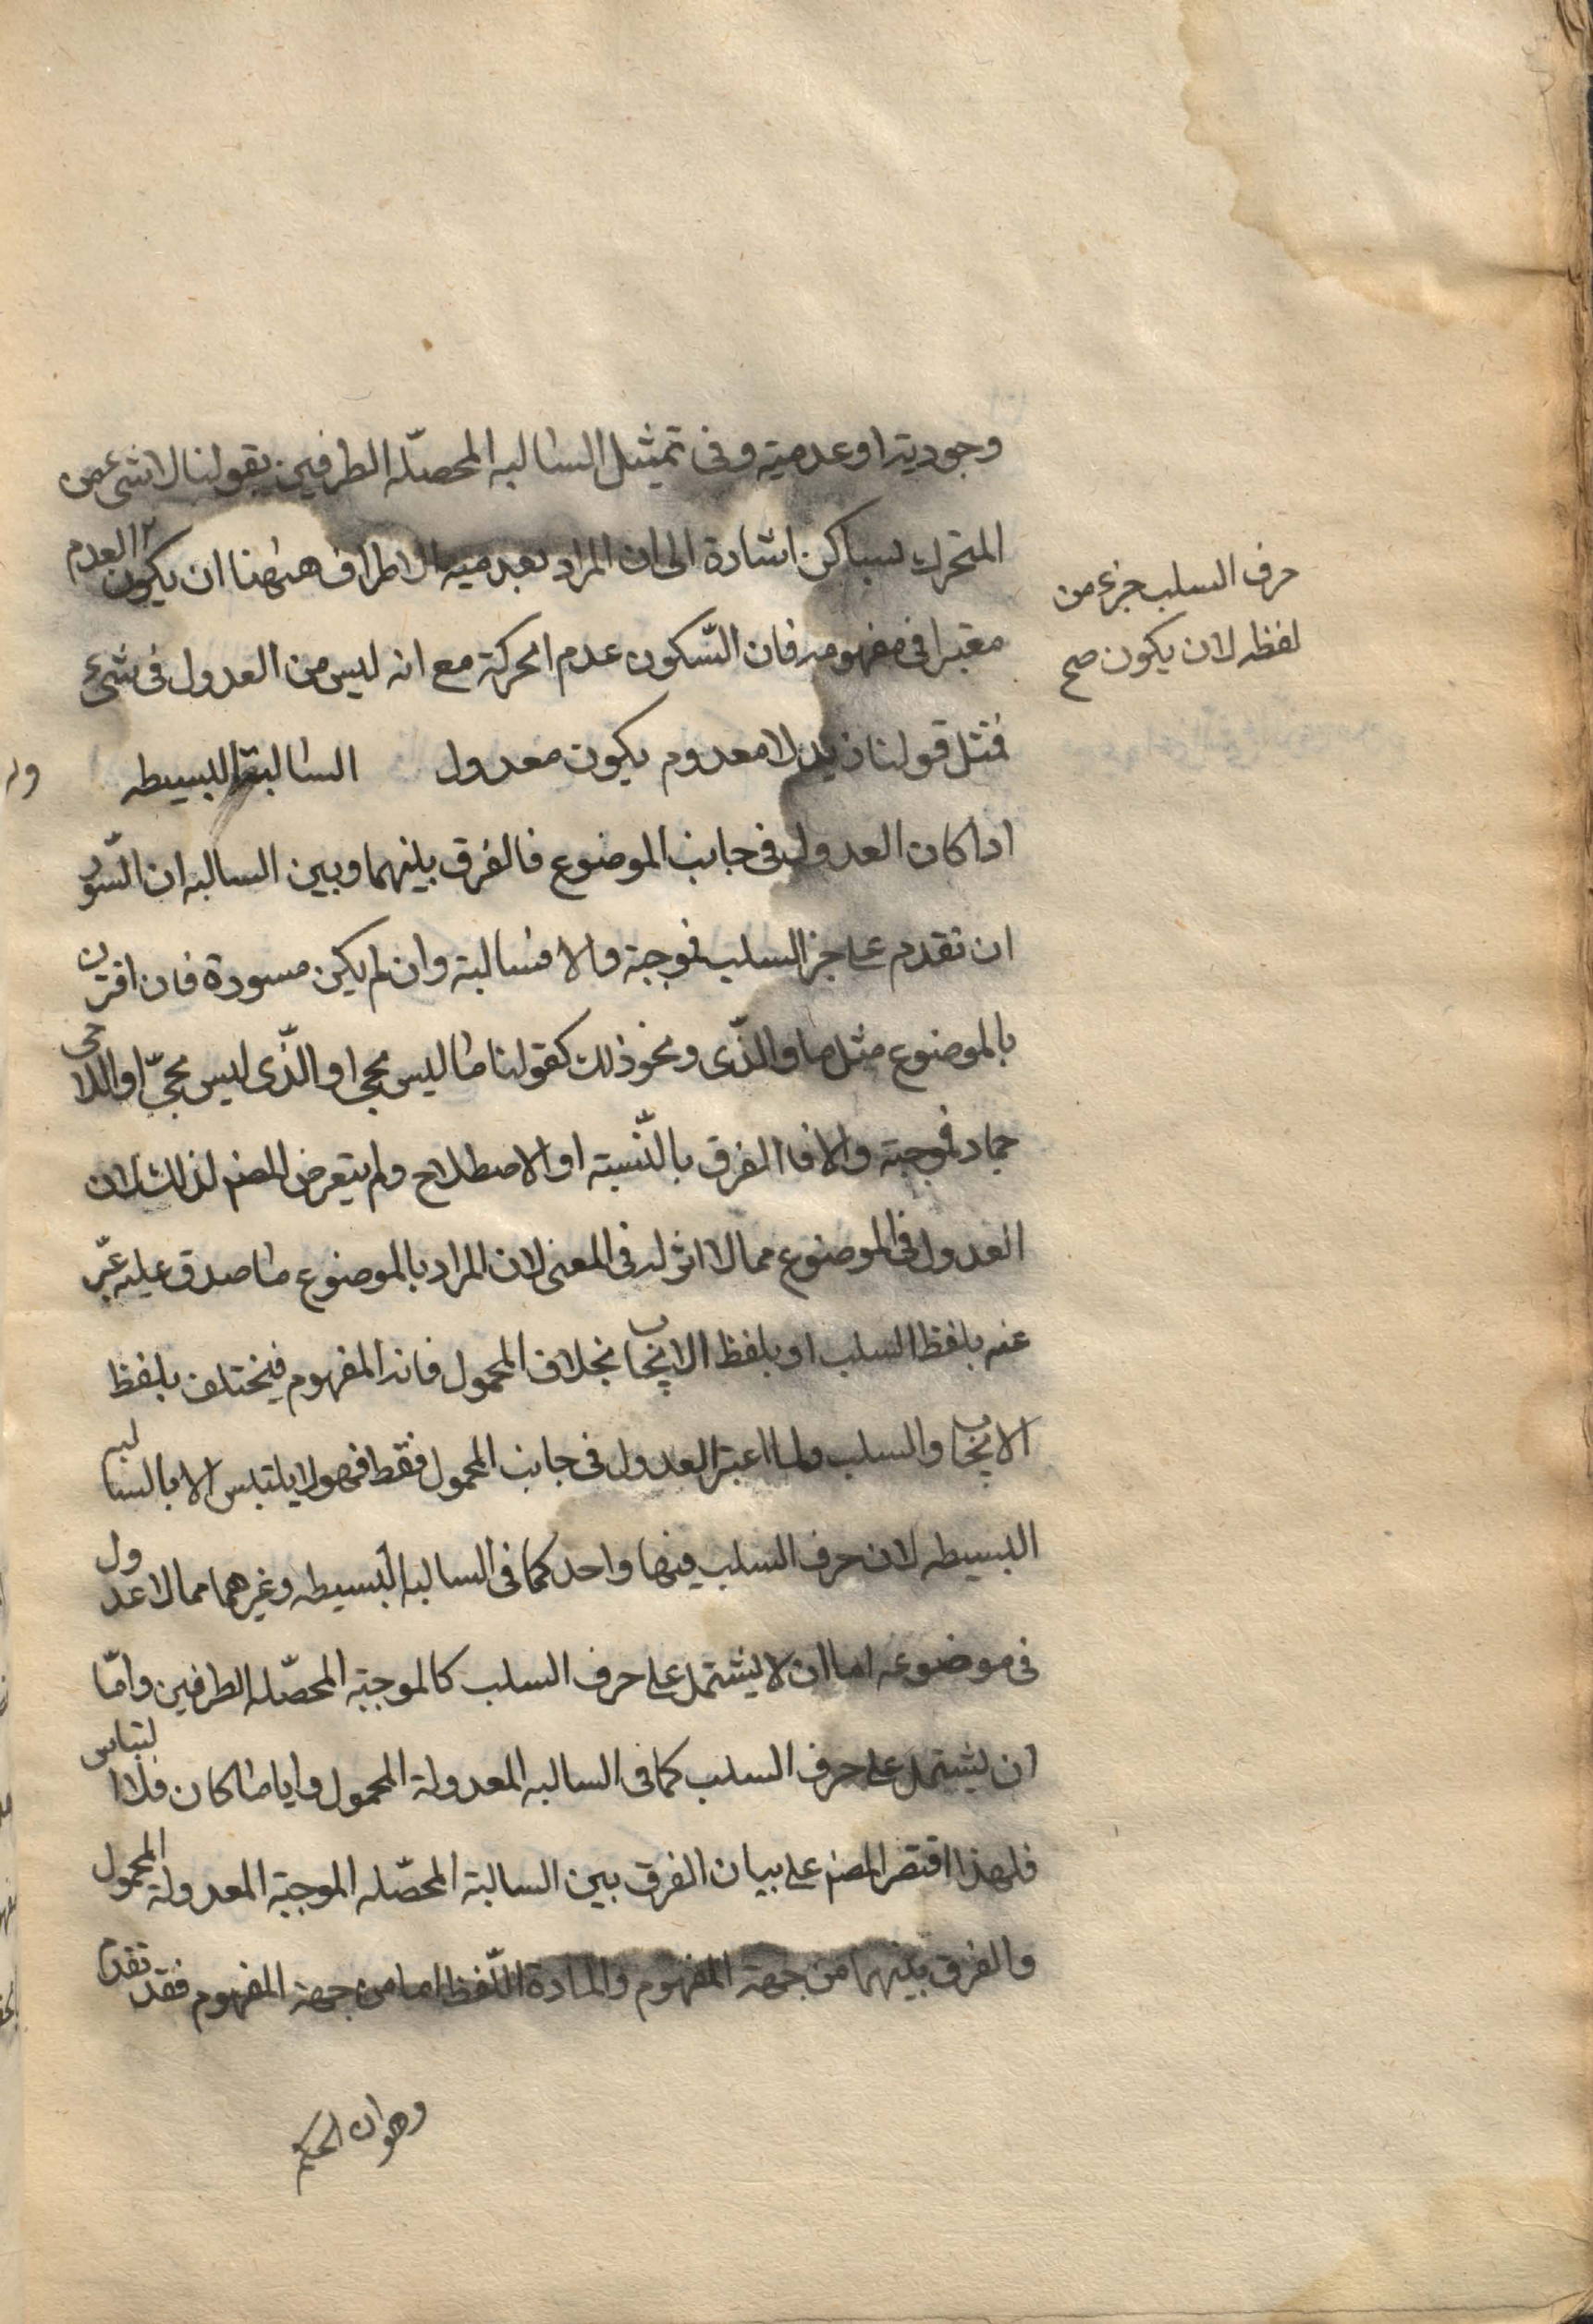 وجودية او عدمية وفى تمثيل السالبه المحصّله الطرفين بقولنا لا شىء من
المتحرك بساكن اشارة الى ان المراد بعدميه الاطراف ههنا ان يكون العدم
حرف السلب جزء من
لفظه لان يكون صح
معتبرا فى مفهومه فان السّكون عدم الحركة مع انه ليس من العدول فى شىء
فمثل قولنا زيد لا معدوم يكون معدول السالبة البسيطه
اذا كان العدول فى جانب الموضوع فالفرق بينهما وبين السالبه ان السّور
ان تقدم على جز السلب فموجبة والا فسالبة وان لم يكن مسورة فان اقترن
بالموضوع مثل ما والذّى ونحو ذلك كقولنا ما ليس بحى او الذّى ليس بحىّ او اللا حى
جماد فموجبة والا فالفرق بالنّسبته او الاصطلاح ولم يتعرض المصنم لذلك لان
العدول فى الموضوع مما لا اثر له فى المعنى لان المراد بالموضوع ما صدق عليه عبّر
عنه بلفظ السلب او بلفظ الايجاب بخلاف المحمول فانه المفهوم فيختلف بلفظ
الايجاب والسلب ولما اعتبر العدول فى جانب المحمول فقط فهو لا يلتبس الا بالسالبه
البسيطه لان حرف السلب فيها واحد كما فى السالبه البسيطه وغيرهما مما لا عدول
فى موضوعه اما ان لا يشتمل على حرف السلب كالموجبة المحصّله الطرفين وامّا
ان يشتمل على حرف السلب كما فى السالبه المعدولة المحمول وايا ما كان فلا التباس
فلهذا اقتصر المصنم على بيان الفرق بين السالبة المحصّله الموجبة المعدولة المحمول
والفرق بينهما من جهة المفهوم والمادة اللّفظ اما من جهة المفهوم فقد تقدم
وهو ان الحكم